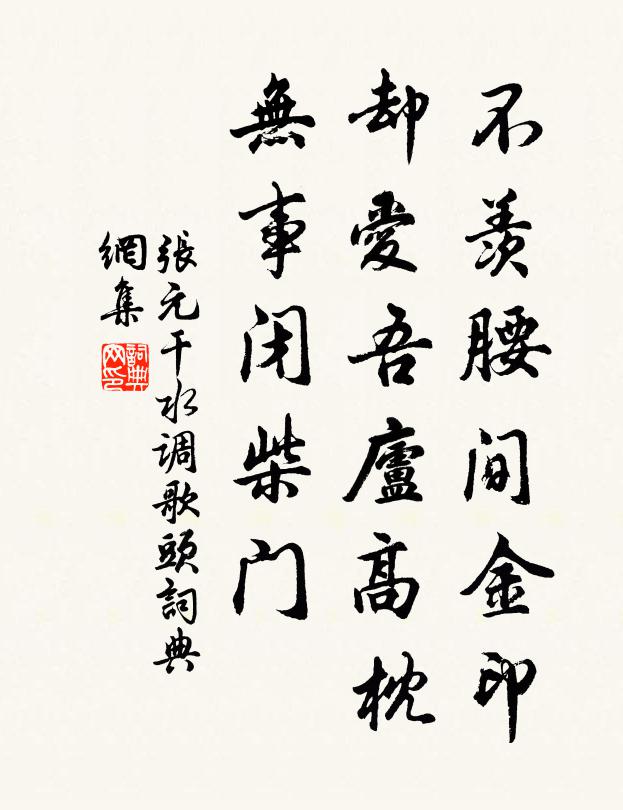 不羨腰间金印
却愛吾廬高枕
無事闭柴门
張元干水调歌頭詞典
網集
詞典
网印